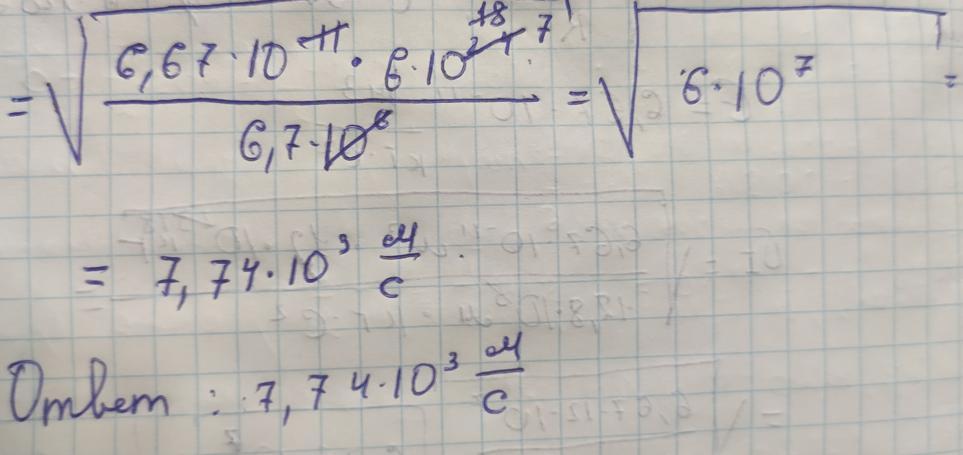 = √(6,67·10⁻¹¹ · 6·10²⁴ ¹⁸ ⁷ / 6,7·10⁶) = √(6·10⁷) =
= 7,74·10³ м/с
Ответ: 7,74·10³ м/с